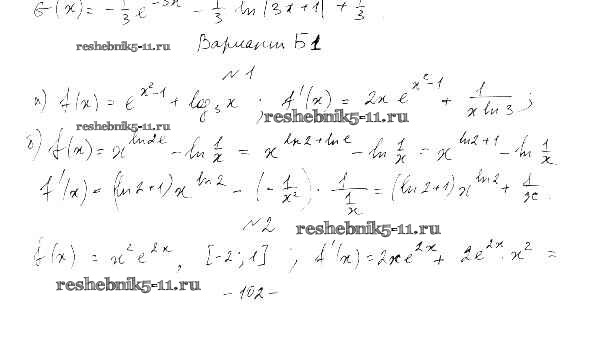 G(x) = -1/3 e^(-3x) - 1/3 ln|3x+1| + 1/3.
reshebnik5-11.ru Вариант Б1
№1
а) f(x) = e^(x²-1) + log₃x ; f'(x) = 2x e^(x²-1) + 1/(x ln 3) ;
reshebnik5-11.ru reshebnik5-11.ru
б) f(x) = x^(ln2e) - ln 1/x = x^(ln2+lne) - ln 1/x = x^(ln2+1) - ln 1/x
f'(x) = (ln2+1)x^(ln2) - (-1/x²) · 1/(1/x) = (ln2+1)x^(ln2) + 1/x.
№2 reshebnik5-11.ru
f(x) = x²e^(2x), [-2;1] ; f'(x) = 2xe^(2x) + 2e^(2x)·x² =
reshebnik5-11.ru
-102-